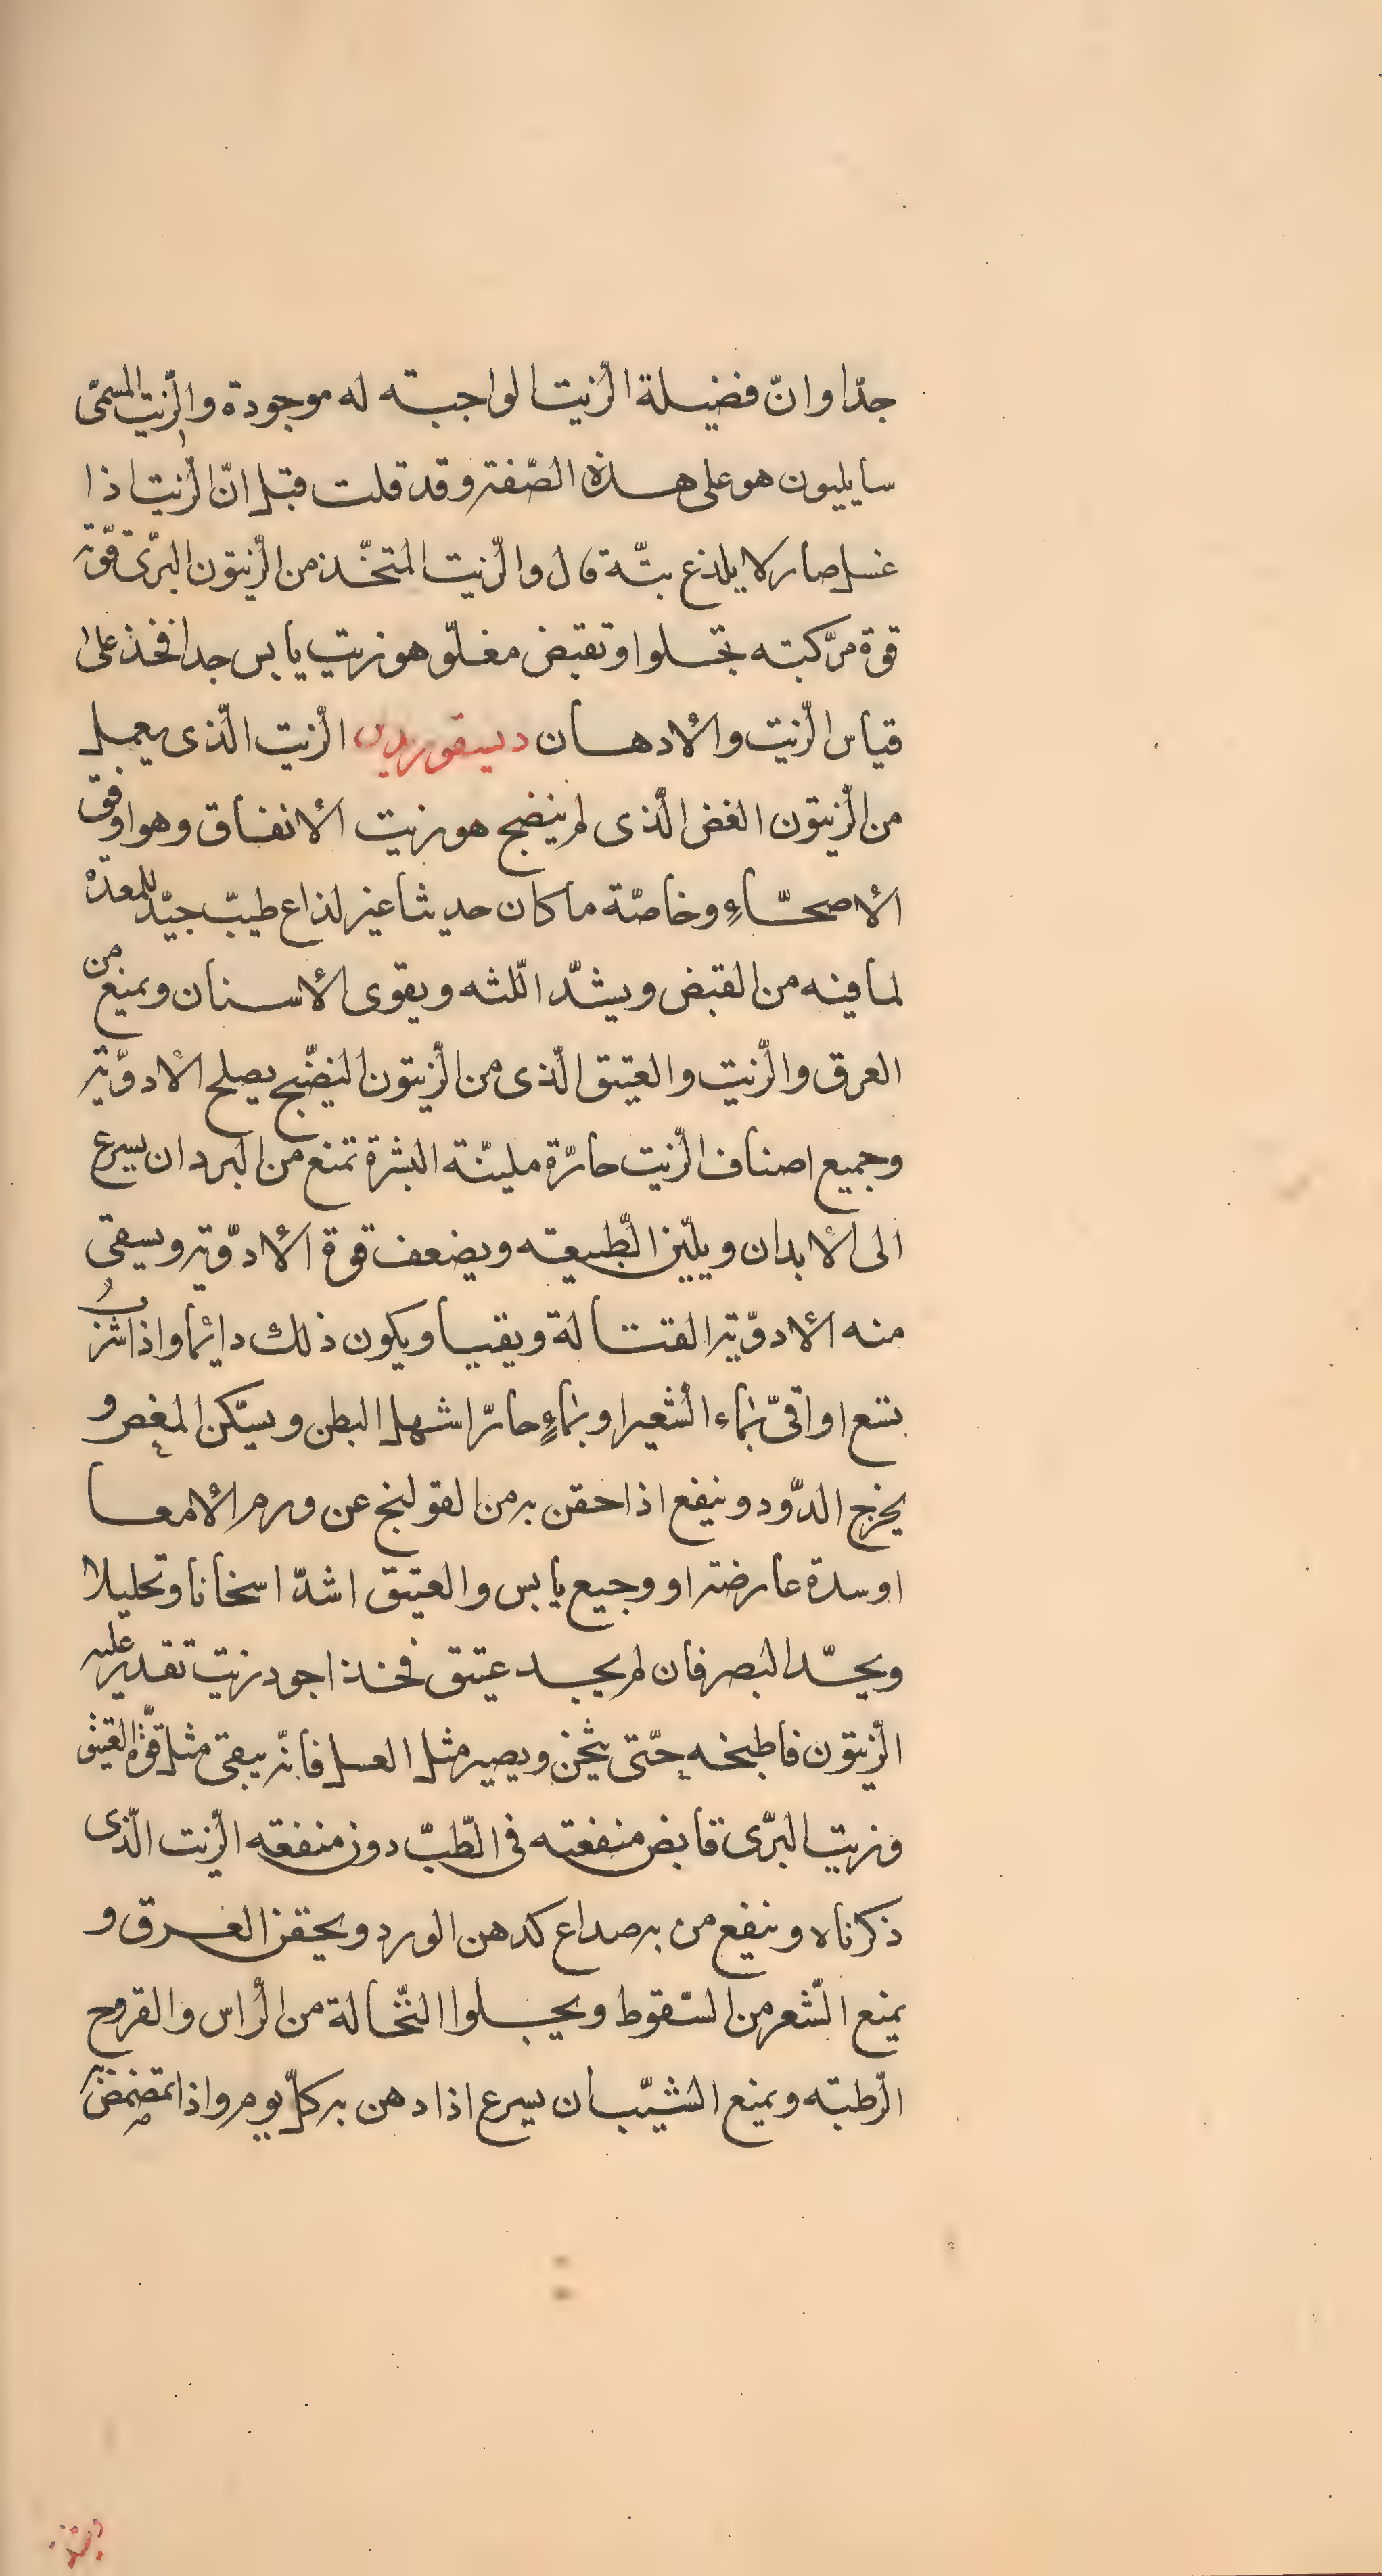 جدّا وانّ فضيلة الزّيت الواجبته له موجودة والزّيت المسمّى
سايليون هو على هذه الصّفة وقد قلت قبل انّ الزّيت اذا
غسل صار لا يلذع بتّة قال والزّيت المتخّذ من الزّيتون البرّى قوّته
قوة مرّكبته تجلوا وتقبض مغلّو هو زيت يابس جدا فخذ على
قياس الزّيت والأدهان ديسقوريدس الزّيت الّذى يعمل
من الزّيتون الغض الّذى لم ينضج هو زيت الأنفاق وهو اوفق
الأصحّاءِ وخاصّة ما كان حديثا غير لذاع طيبّ جيّد للمعدة
لما فيه من القبض ويشدّ اللّثه ويقوى الأسنان ويمنع من
العرق والزّيت والعتيق الّذى من الزّيتون النيضّج يصلح الأدوّية
وجميع اصناف الزّيت حارّة مليّنة البشرة تمنع من البرد ان يسرع
الى الأبدان ويليّن الطّبيعه ويضعف قوة الأدوّية ويسقى
منه الأدوّية القتالة ويقيا ويكون ذلك دائما واذا شرب
تسع اواقىّ بماء الشّعير او بماءٍ حارّ اسهل البطن ويسّكن المغص و
يخرج الدّود وينفع اذا حقن به من القولنج عن ورم الأمعا
او سدة عارضة او وجيع يابس والعتيق اشدّ اسخانا وتحليلا
ويحدّ البصر فان لم يجد عتيق فخذ اجود زيت تقدير عليه
الزّيتون فاطبخه حتّى يثخن ويصير مثل العسل فانّه يبقى مثل قوّة العتيق
وزيت البرّى قابض منفعته فى الطّبّ دون منفعه الزّيت الّذى
ذكرناه وينفع من به صداع كدهن الورد ويحقن العرق و
يمنع الشّعر من السّقوط ويجلوا النّخالة من الرّاس والقروح
الرّطبته ويمنع الشيّب ان يسرع اذا دهن به كلّ يوم واذا تمضمض به